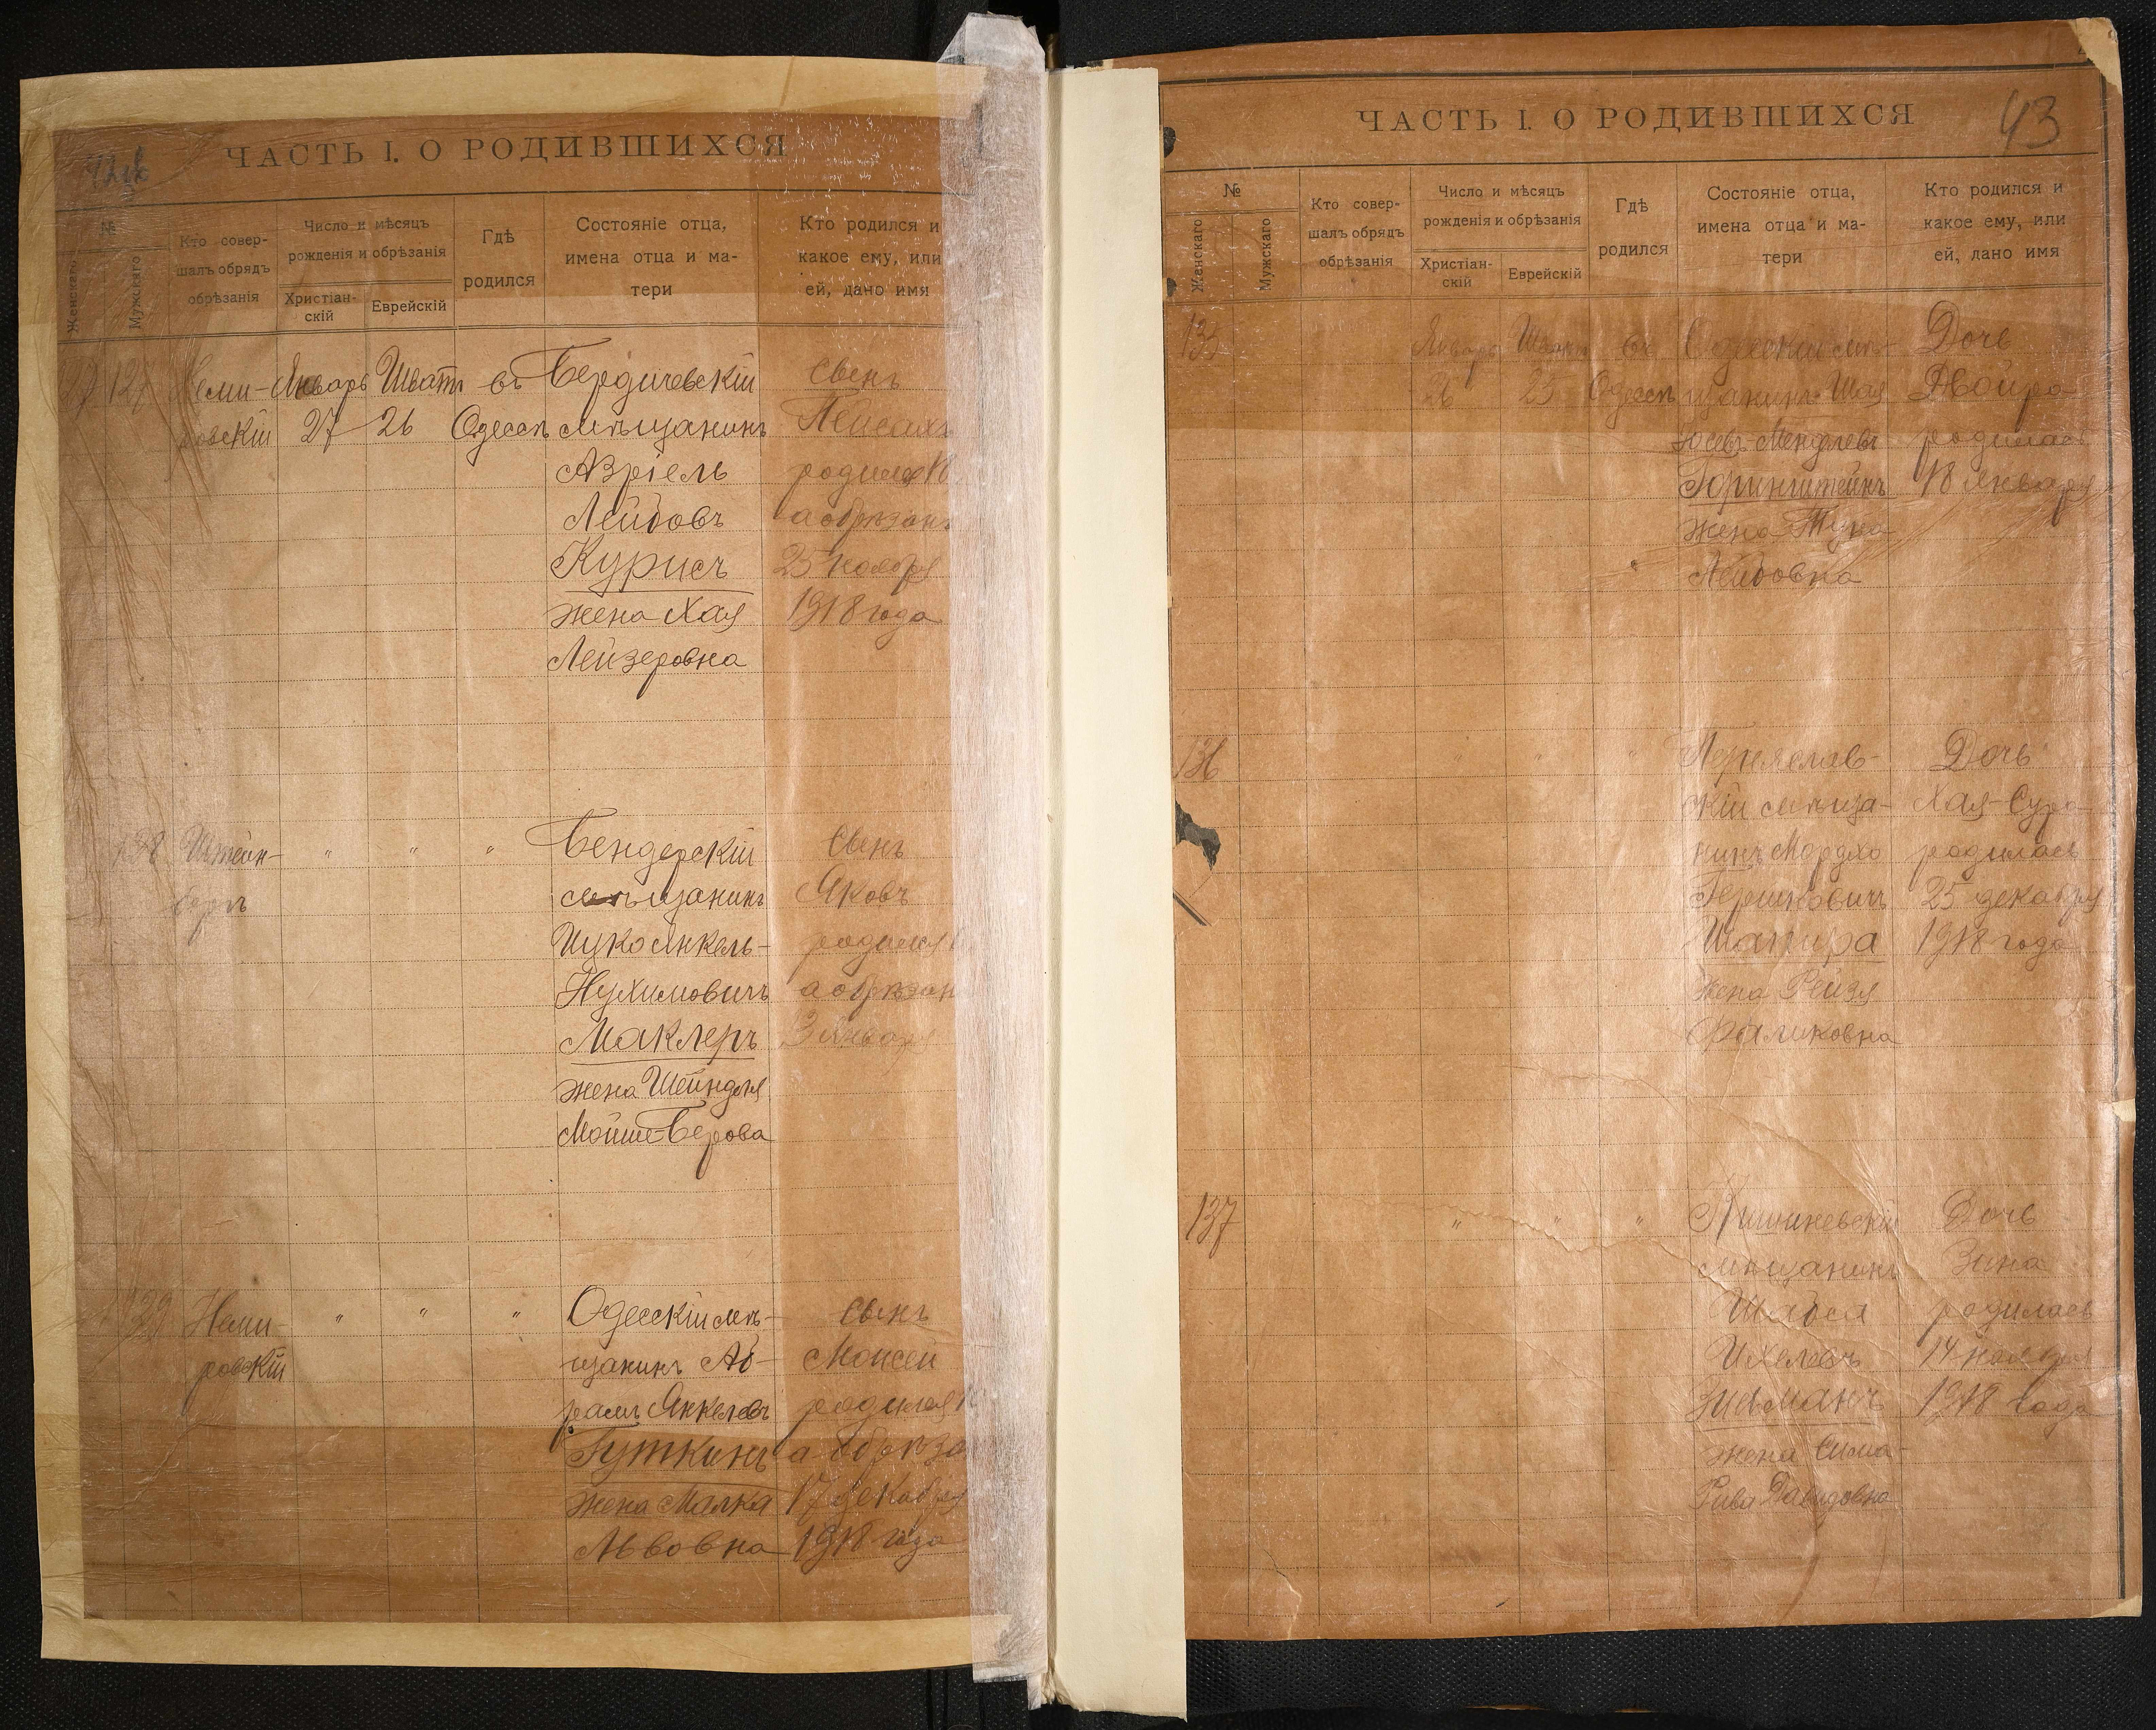 ЧАСТЬ I. О РОДИВШИХСЯ
№
Женскаго
Мужскаго
Кто совер-
шалъ обрядъ
обрѣзанія
Число и мѣсяцъ
рожденія и обрѣзанія
Христіан-
скій
Еврейскій
Гдѣ
родился
Состояніе отца,
имена отца и ма-
тери
Кто родился и
какое ему, или
ей, дано имя
127
Неми-
ровскій
Январь
27
Шватъ
26
въ
Одессѣ
Бердичевскій
мѣщанинъ
Азріель
Лейбовъ
Курисъ
жена Хая
Лейзеровна
Сынъ
Пейсахъ
родился 18
а обрѣзанъ
25 ноября
1918 года
138
Штейн-
бергъ
" " "
Бендерскій
мѣщанинъ
Ицко Янкель-
Нухимовичъ
Маклеръ
жена Шейндля
Мойше-Берова
Сынъ
Яковъ
родился
а обрѣзанъ
3 января
139
Неми-
ровскій
" " "
Одесскій мѣ-
щанинъ Аб-
рамъ Янкелевъ
Гуткинъ
жена Малка
Львовна
Сынъ
Моисей
родился
а обрѣза
17 декабря
1918 года
ЧАСТЬ I. О РОДИВШИХСЯ
43
№
Женскаго
Мужскаго
Кто совер-
шалъ обрядъ
обрѣзанія
Число и мѣсяцъ
рожденія и обрѣзанія
Христіан-
скій
Еврейскій
Гдѣ
родился
Состояніе отца,
имена отца и ма-
тери
Кто родился и
какое ему, или
ей, дано имя
135
Январь
Шватъ
25
въ
Одессѣ
Одесскій мѣ-
щанинъ Шая
Іосевъ-Менделевъ
Горинштейнъ
жена
Лейбовна
Дочь
Двойра
родилась
18 января
136
" " "
Переяслав-
скій мѣща-
нинъ Мордхо
Гершковичъ
Шапира
жена Рейзя
Фроимовна
Дочь
Хая-Сура
родилась
25 декабря
1918 года
137
" " "
Кишиневскій
мѣщанинъ
Шабся
Ихелевъ
Зисманъ
жена Сима-
Рива Давидовна
Дочь
Зина
родилась
14 ноября
1918 года